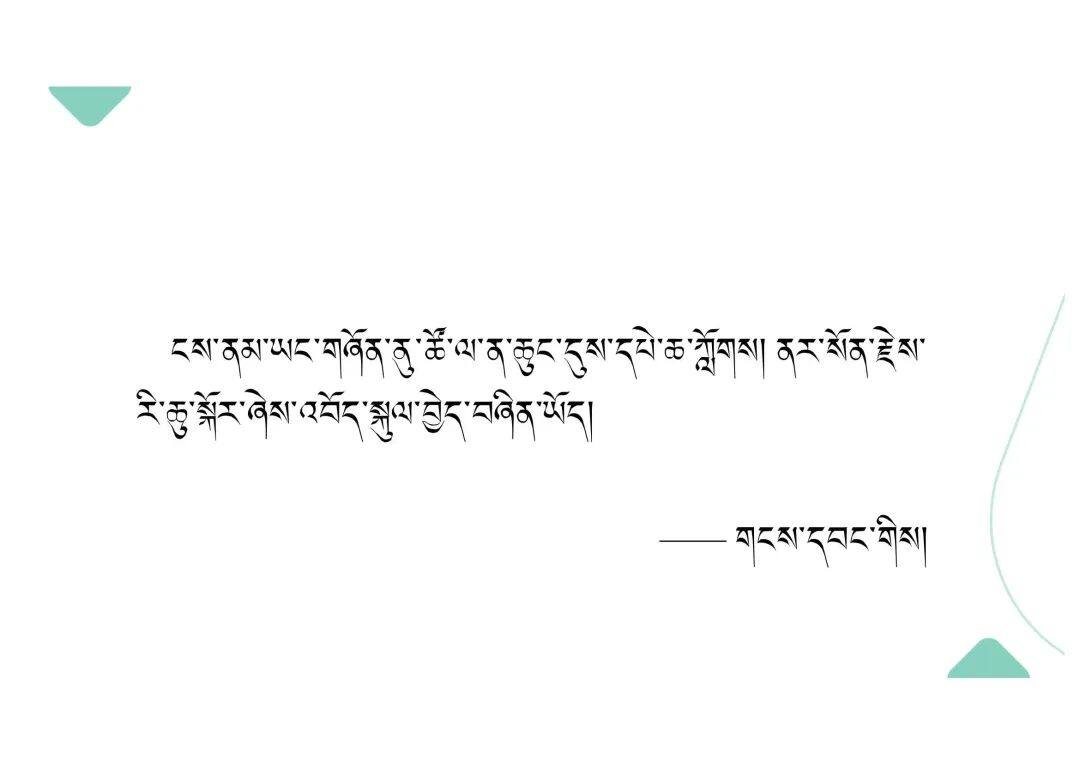 ངས་ནམ་ཡང་གཞོན་ནུ་ཚོ་ལ་ན་ཆུང་དུས་དཔེ་ཆ་ཀློགས། ནར་སོན་རྗེས་
རི་ཆུ་སྐོར་ཞེས་འབོད་སྐུལ་བྱེད་བཞིན་ཡོད།
—— གངས་དབང་གིས།